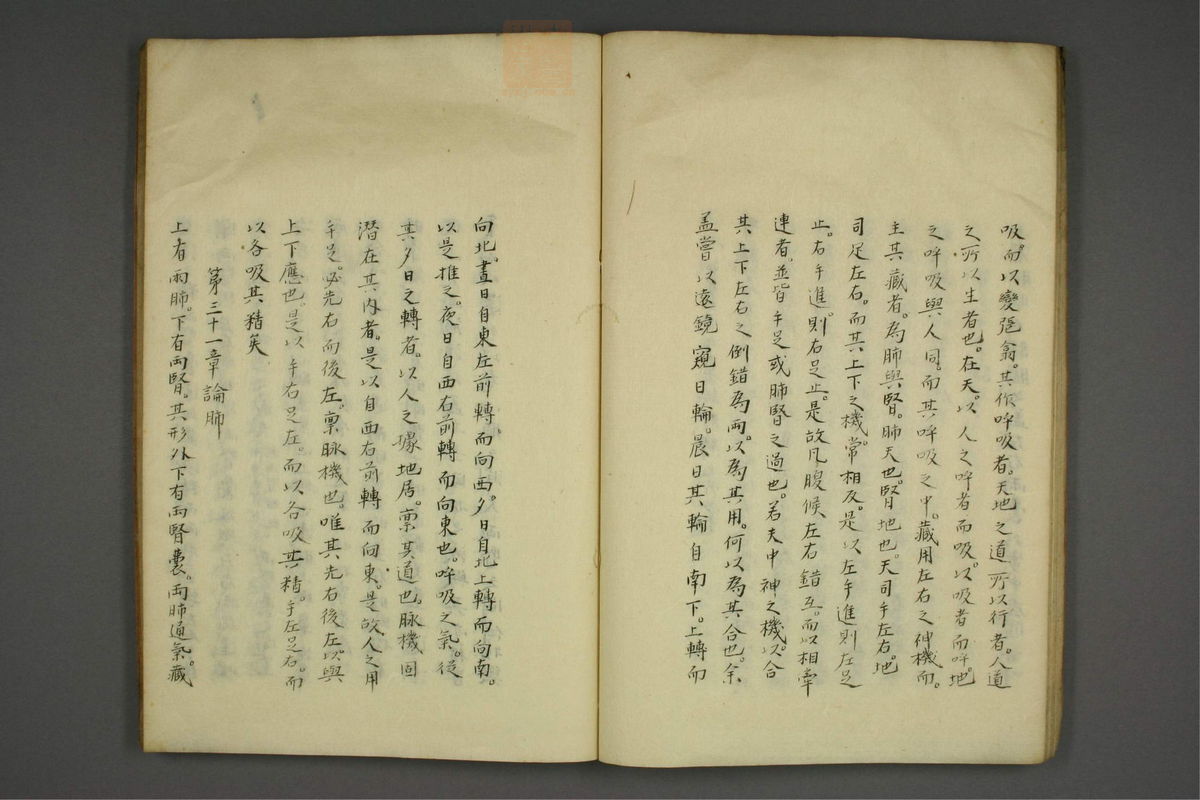 吸。而以變弛翕。其作呼吸者。天地之道所以行者。人道
之所以生者也。在天。以人之呼者而吸。以吸者而呼。地
之呼吸與人同。而其呼吸之中。藏用左右之神機。而
主其藏者。為肺與腎。肺天也。腎地也。天司手左右。地
司足左右。而其上下之機。常相反。是以左手進則左足
止。右手進。則右足止。是故凡腹候左右錯互。而以相牽
連者。並皆手足或肺腎之過也。若夫中神之機。以合
其上下左右之倒錯為兩。以為其用。何以為其合也。余
盖嘗以遠鏡窺日輪。晨日其輪自南下。上轉而
向北。晝日自東左前轉。而向西。夕日自北上轉而向南。
以是推之。夜日自西右前轉而向東也。呼吸之氣。從
其夕日之轉者。以人之據地居。稟其道也。脉機固
潜在其内者。是以自西右前轉而向東。是故人之用
手足。必先右而後左。稟脉機也。唯其先右後左。以與
上下應也。是以手右足左。而以各吸其精。手左足右。而
以各吸其精矣
第三十一章論肺
上有兩肺。下有兩腎。其形外下有兩腎囊。兩肺通氣。藏